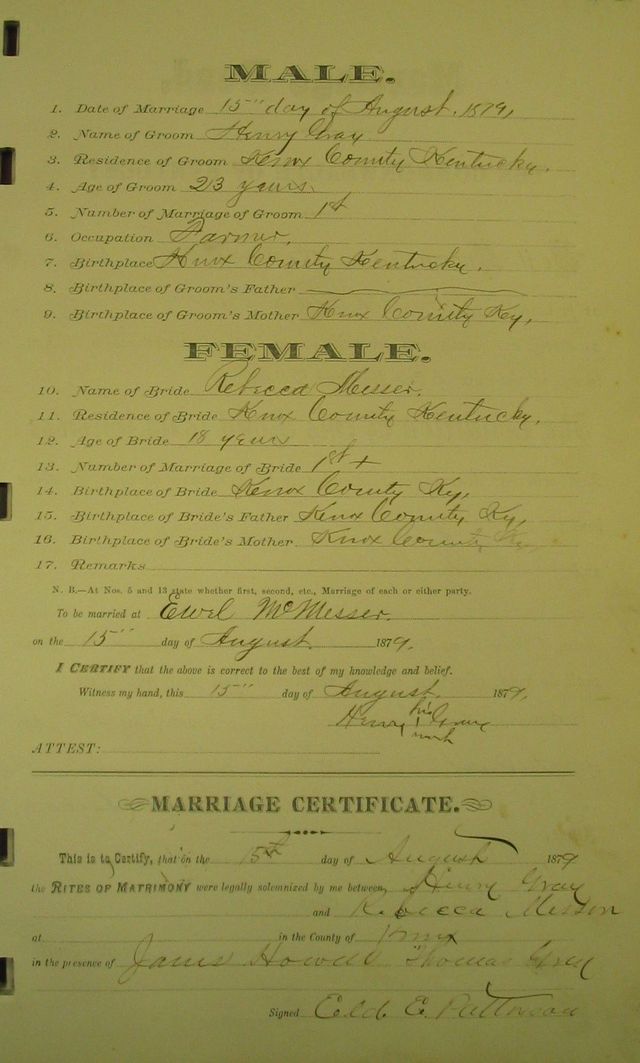 MALE.
1. Date of Marriage 15" day of August, 1879,
2. Name of Groom Henry Gray
3. Residence of Groom Knox County Kentucky.
4. Age of Groom 23 years.
5. Number of Marriage of Groom 1st
6. Occupation Farmer.
7. Birthplace Knox County Kentucky.
8. Birthplace of Groom's Father
9. Birthplace of Groom's Mother Knox County Ky,
FEMALE.
10. Name of Bride Rebecca Messer.
11. Residence of Bride Knox County Kentucky.
12. Age of Bride 18 years
13. Number of Marriage of Bride 1st +
14. Birthplace of Bride Knox County Ky,
15. Birthplace of Bride's Father Knox County Ky,
16. Birthplace of Bride's Mother Knox County Ky
17. Remarks
N. B.—At Nos. 5 and 13 state whether first, second, etc., Marriage of each or either party.
To be married at Messer.
on the 15" day of August 1879.
I CERTIFY that the above is correct to the best of my knowledge and belief.
Witness my hand, this 15" day of August 1879,
his
Henry Gray
mark
ATTEST:
MARRIAGE CERTIFICATE.
This is to Certify, that on the 15th day of August 1879
the RITES OF MATRIMONY were legally solemnized by me between Henry Gray
and Rebecca
at in the County of Knox
in the presence of Thomas Gray
Signed Eld. E.